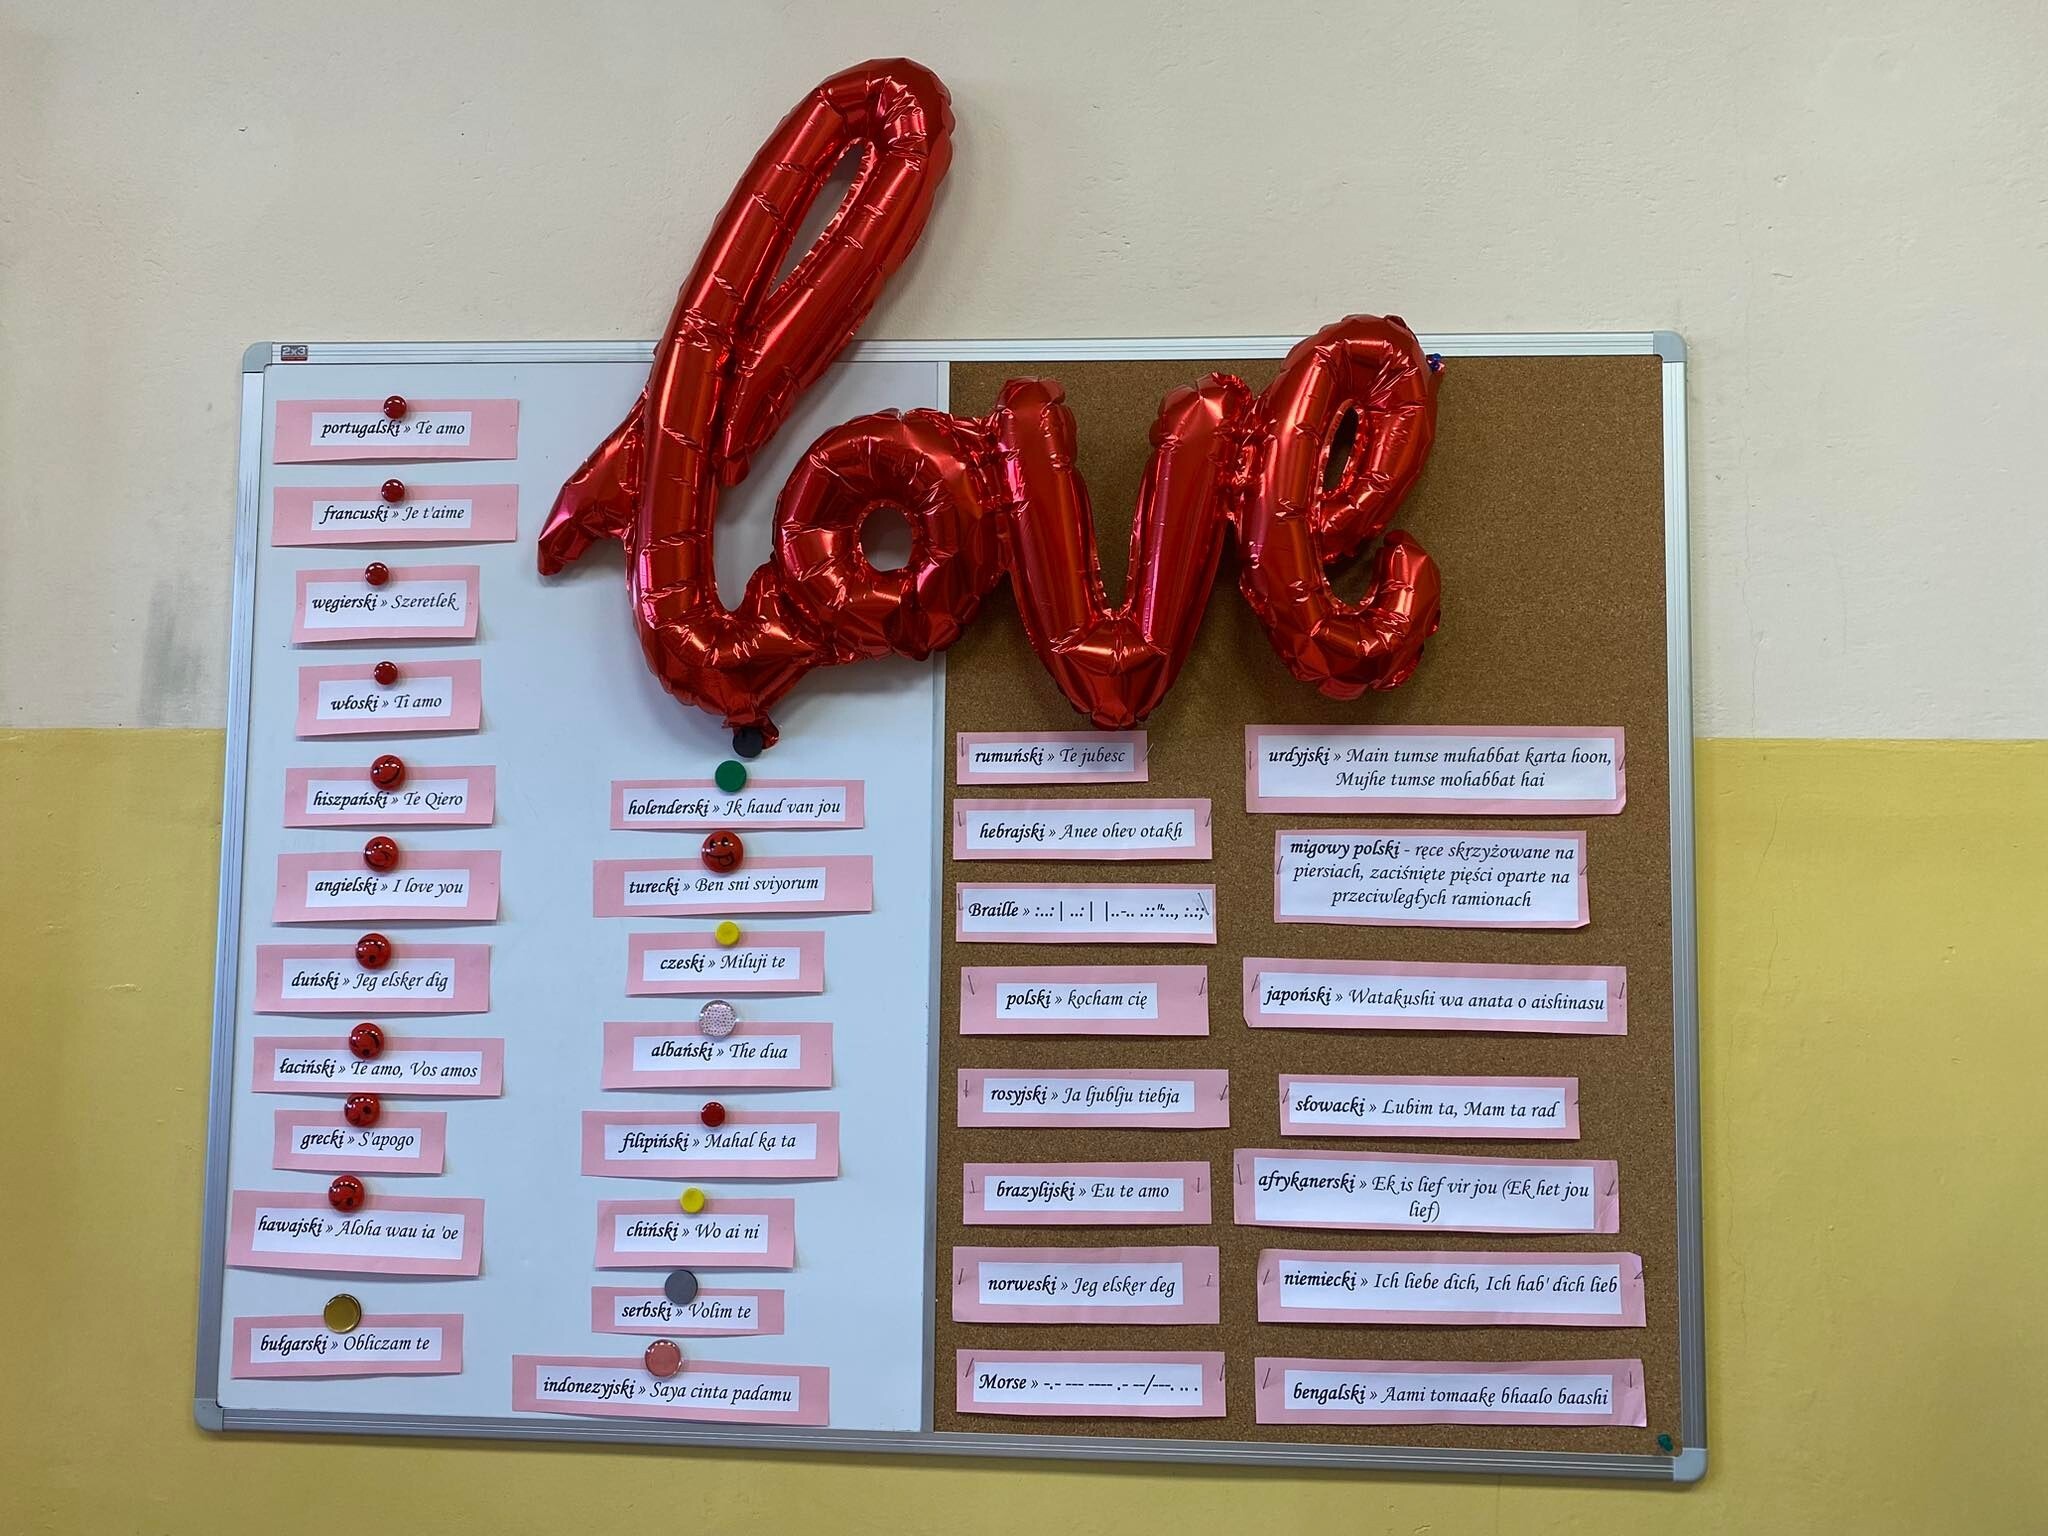 love
2x3
portugalski » Te amo
francuski » Je t'aime
węgierski » Szeretlek
włoski » Ti amo
hiszpański » Te Qiero
angielski » I love you
duński » Jeg elsker dig
łaciński » Te amo, Vos amos
grecki » S'apogo
hawajski » Aloha wau ia 'oe
bułgarski » Obliczam te
holenderski » Ik haud van jou
turecki » Ben sni sviyorum
czeski » Miluji te
albański » The dua
filipiński » Mahal ka ta
chiński » Wo ai ni
serbski » Volim te
indonezyjski » Saya cinta padamu
rumuński » Te jubesc
hebrajski » Anee ohev otakh
Braille »
polski » kocham cię
rosyjski » Ja ljublju tiebja
brazylijski » Eu te amo
norweski » Jeg elsker deg
Morse » -.- --- ---- .- --/---. .. .
urdyjski » Main tumse muhabbat karta hoon,
Mujhe tumse mohabbat hai
migowy polski - ręce skrzyżowane na
piersiach, zaciśnięte pięści oparte na
przeciwległych ramionach
japoński » Watakushi wa anata o aishinasu
słowacki » Lubim ta, Mam ta rad
afrykanerski » Ek is lief vir jou (Ek het jou
lief)
niemiecki » Ich liebe dich, Ich hab' dich lieb
bengalski » Aami tomaake bhaalo baashi